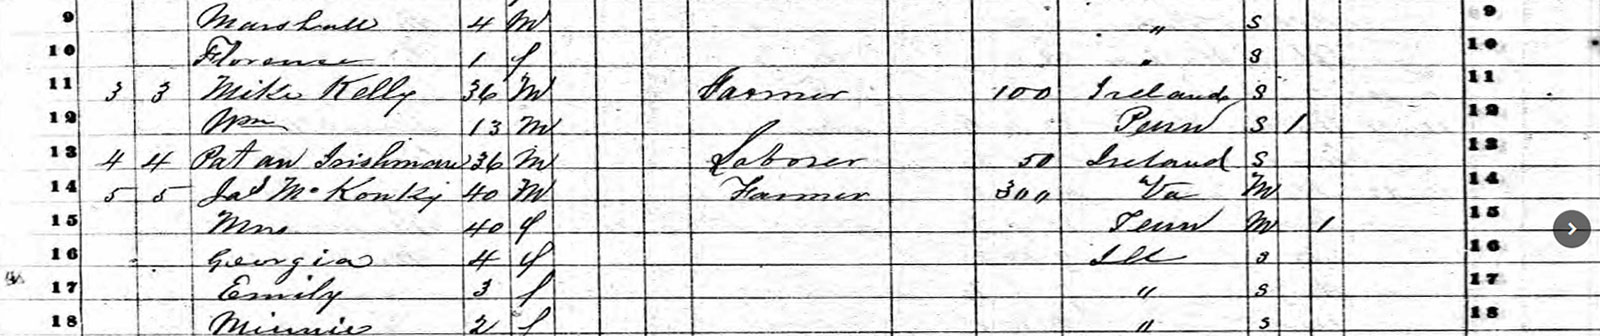 9 Marshall 4 M " S 9
10 Florence 1 f " S 10
11 3 3 Mike Kelly 36 M Farmer 100 Ireland S 11
12 Wm 13 M Penn S 1 12
13 4 4 Pat an Irishman 36 M Laborer 50 Ireland S 13
14 5 5 Jas McKonkey 40 M Farmer 300 Va M 14
15 Mrs 40 f Tenn M 1 15
16 Georgia 4 f Ill S 16
17 Emily 3 f " S 17
18 Minnie 2 f " S 18